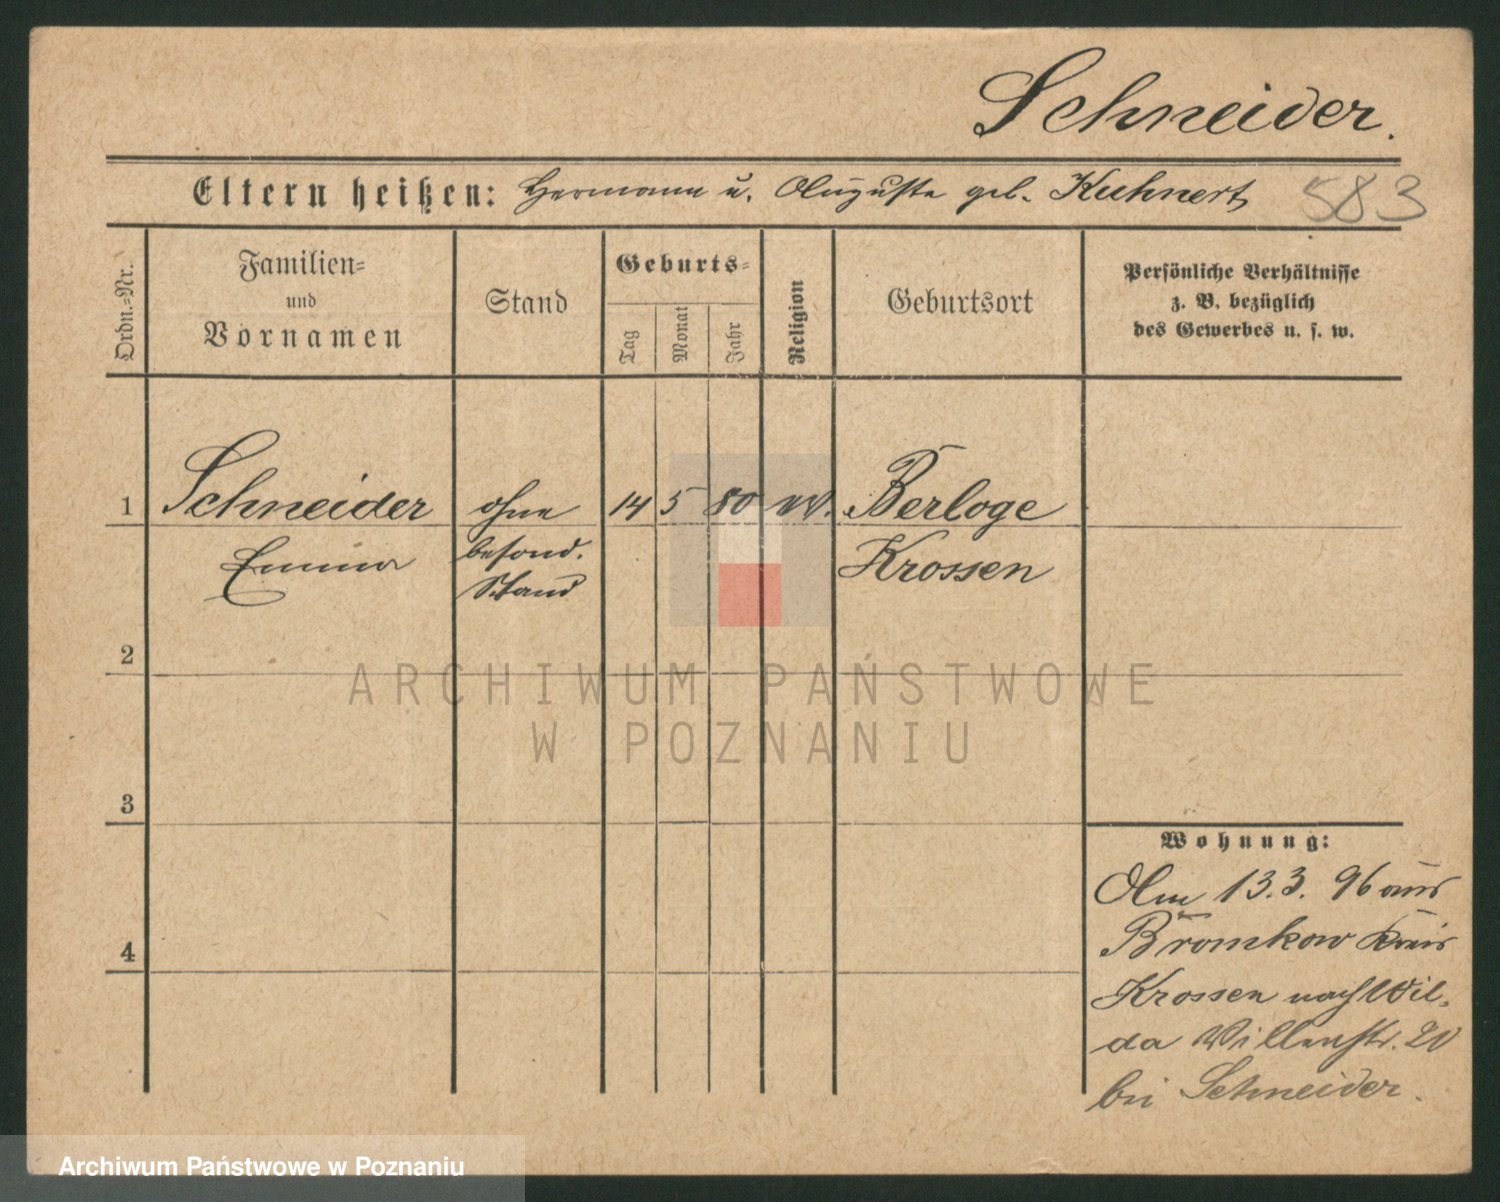 Schneider.
Eltern heißen: Hermann u. Auguste geb. Kuhnert 583
Ordn.-Nr.
Familien-
und
Vornamen
Stand
Geburts-
Tag
Monat
Jahr
Religion
Geburtsort
Persönliche Verhältnisse
z. B. bezüglich
des Gewerbes u. s. w.
1 Schneider ohne 14 5 80 ev. Berloge
Emma besond. Krossen
Stand
2
ARCHIWUM PAŃSTWOWE
W POZNANIU
3
Wohnung:
Am 13.3. 96 aus
4 Bromkow Kreis
Krossen nach Wil-
da Villenstr. 20
bei Schneider.
Archiwum Państwowe w Poznaniu